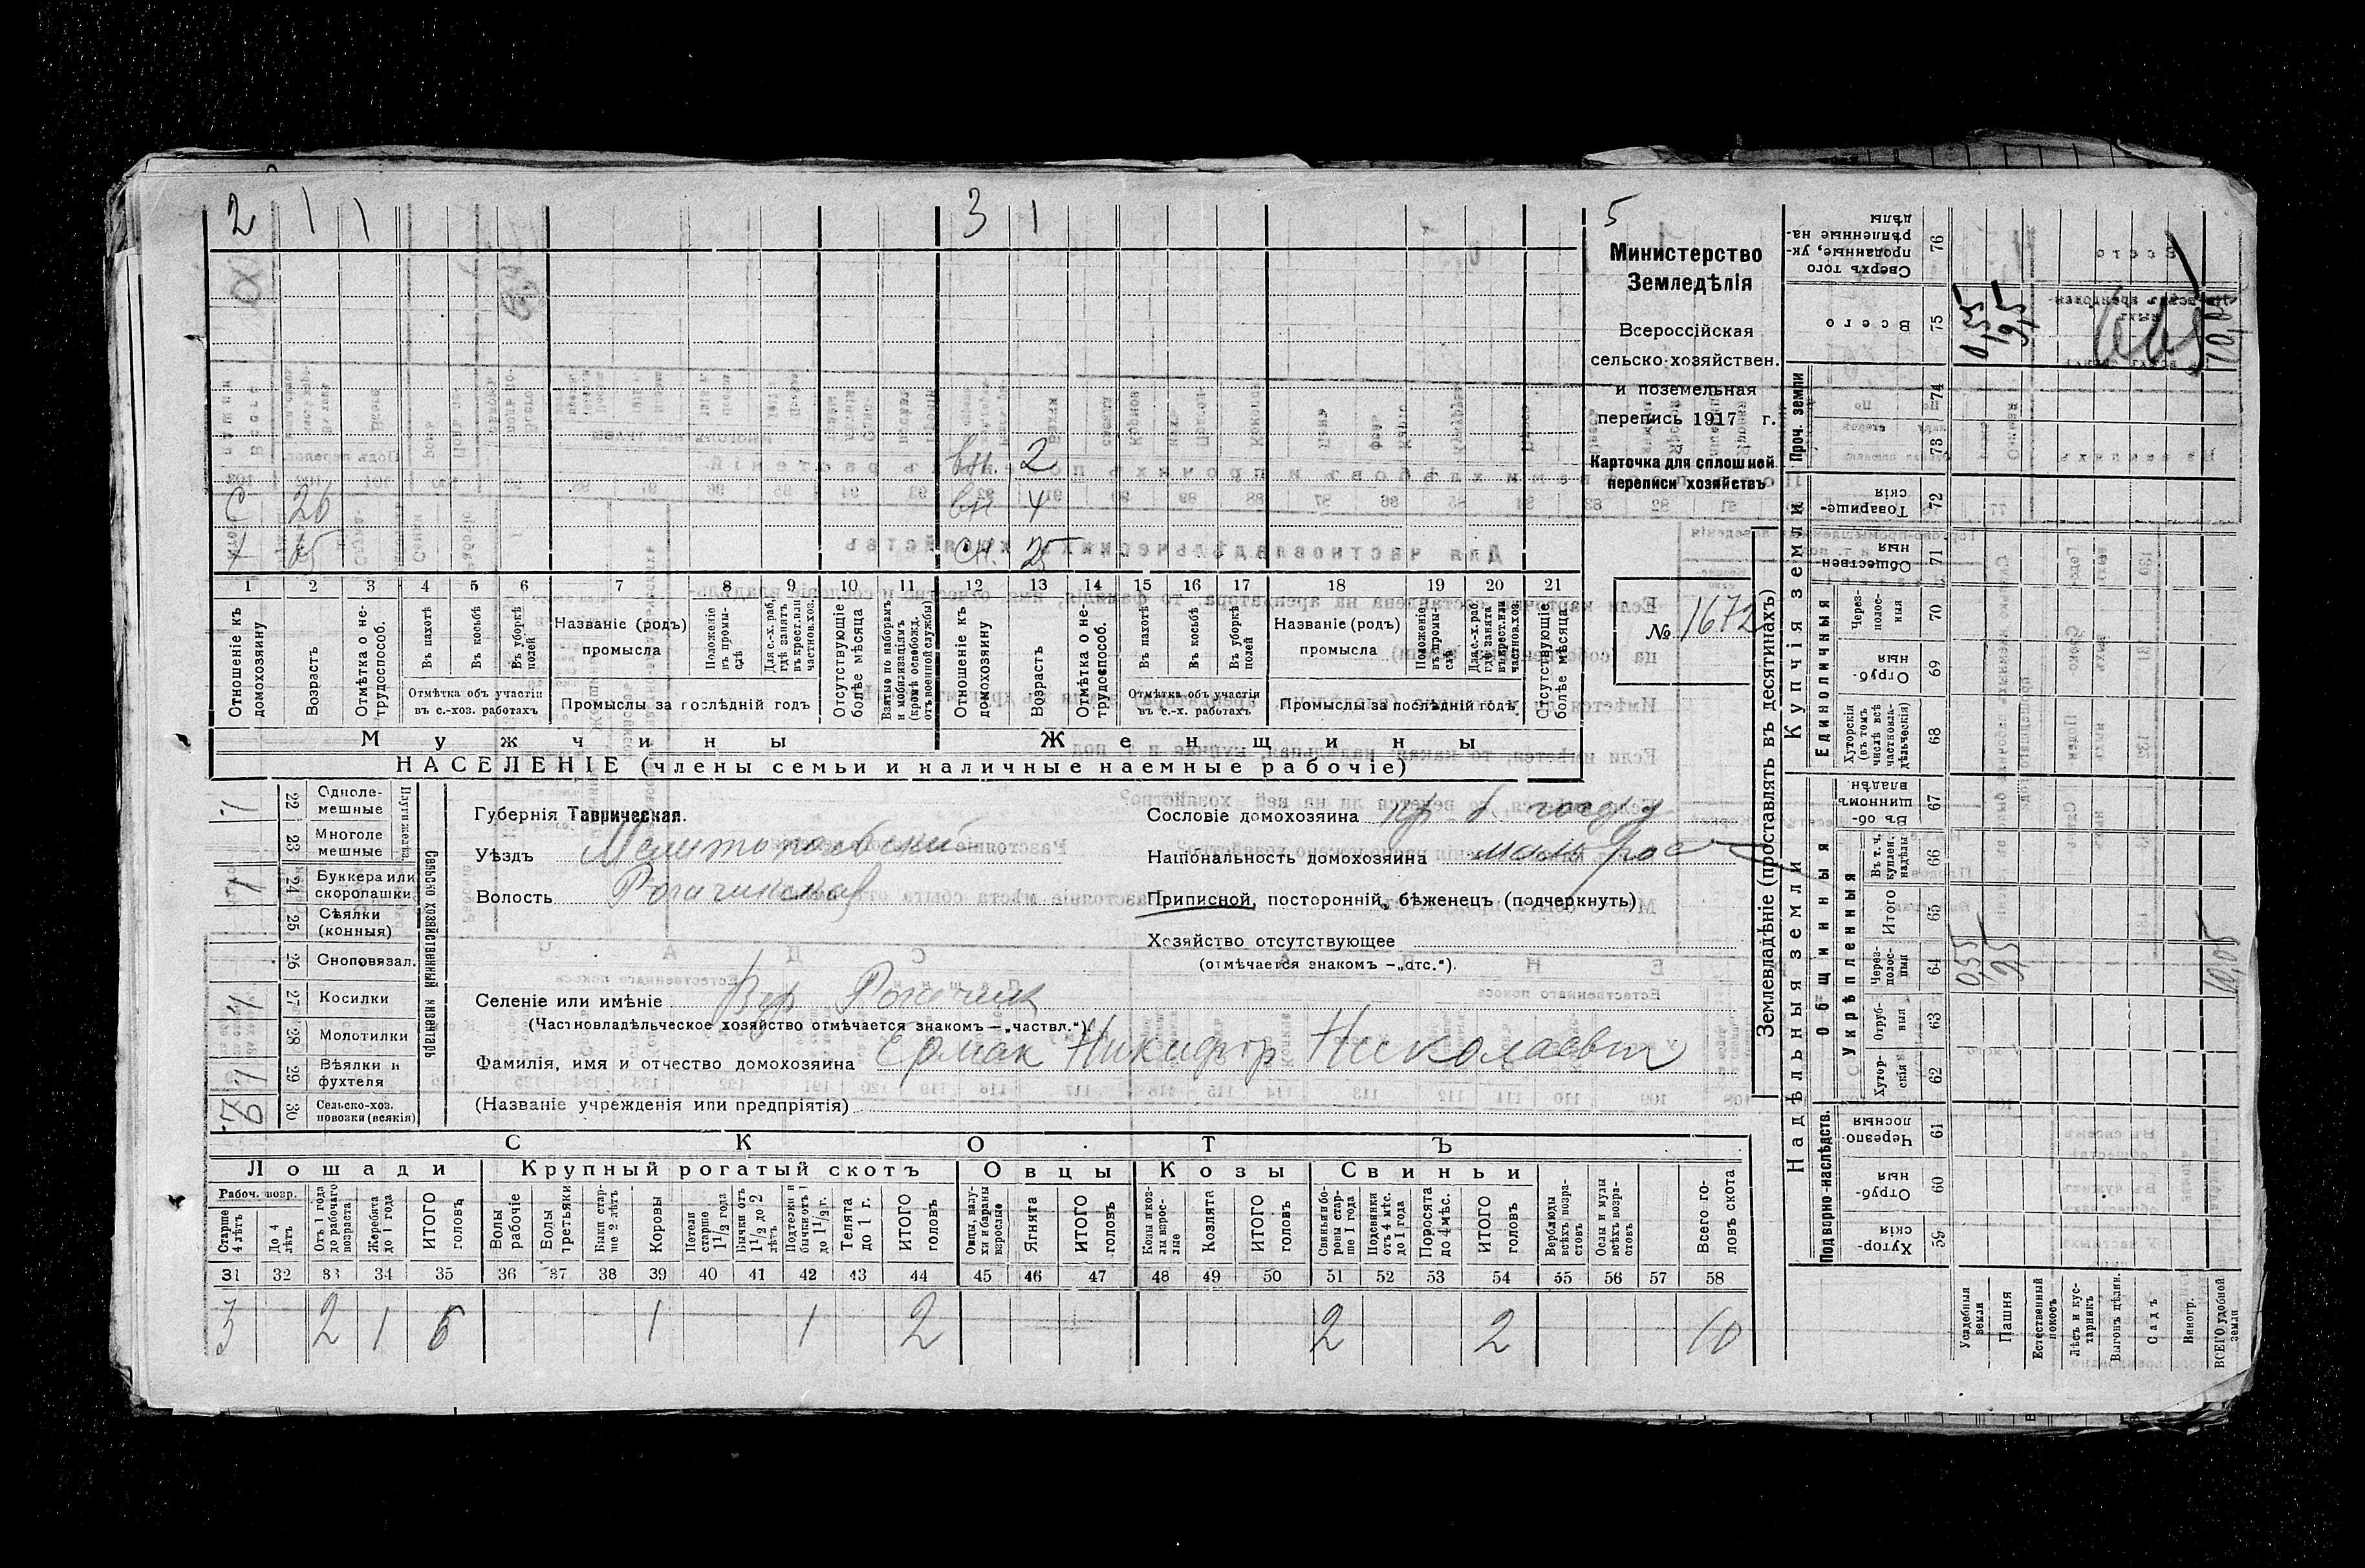 2 1 1 3 1 5
Министерство
Земледѣлія
Всероссійская
сельско-хозяйствен.
и поземельная
перепись 1917 г.
Карточка для сплошной
переписи хозяйствъ
№ 1672
вн. 2
С 26 вн 4
сн. 25
1 2 3 4 5 6 7 8 9 10 11 12 13 14 15 16 17 18 19 20 21
Отношеніе къ домохозяину
Возрастъ
Отмѣтка о не-трудоспособ.
Въ пахотѣ
Въ косьбѣ
Въ уборкѣ полей
Отмѣтка объ участіи въ с.-хоз. работахъ
Названіе (родъ) промысла
Положеніе въ промы-слѣ
Для с.-х. раб. гдѣ занятъ въ крест. или частнов. хоз.
Промыслы за послѣдній годъ
Отсутствующіе болѣе мѣсяца
Взятые по наборамъ и мобилизаціямъ (кромѣ освобожд. отъ военной службы)
Отношеніе къ домохозяину
Возрастъ
Отмѣтка о не-трудоспособ.
Въ пахотѣ
Въ косьбѣ
Въ уборкѣ полей
Отмѣтка объ участіи въ с.-х. работахъ
Названіе (родъ) промысла
Положеніе въ промы-слѣ
Для с.-х. раб. гдѣ занята въ крест. или частнов. хоз.
Промыслы за послѣдній годъ
Отсутствующіе болѣе мѣсяца
Мужчины Женщины
НАСЕЛЕНІЕ (члены семьи и наличные наемные рабочіе)
Сельско-хозяйственный инвентарь
22 Одноле-мешные 1
23 Многоле мешные
24 Буккера или скоропашки 1
25 Сѣялки (конныя)
26 Сноповязал.
27 Косилки 1
28 Молотилки
29 Вѣялки и фухтеля 1
30 Сельско-хоз. повозки (всякія)
Губернія Таврическая.
Уѣздъ Мелитопольскій
Волость Рогачикская
Селеніе или имѣніе Вер Рогачик
(Частновладѣльческое хозяйство отмѣчается знакомъ — „частвл.“)
Фамилія, имя и отчество домохозяина Ермак Никифор Николаевич
(Названіе учрежденія или предпріятія)
Сословіе домохозяина кр б. госуд
Національность домохозяина мало рос
Приписной, посторонній, бѣженецъ (подчеркнуть)
Хозяйство отсутствующее
(отмѣчается знакомъ — „отс.“).
СКОТЪ
Лошади Крупный рогатый скотъ Овцы Козы Свиньи
Рабоч. возр.
Старше 4 лѣтъ
До 4 лѣтъ
Отъ 1 года до рабочаго возраста
Жеребята до 1 года
ИТОГО головъ
Волы рабочіе
Волы третьяки
Быки стар-ше 2 лѣтъ
Коровы
Нетели старше 1 1/2 года
Бычки отъ 1 1/2 до 2 лѣтъ
Подтелки и бычки отъ 1 до 1 1/2 г.
Телята до 1 г.
ИТОГО головъ
Овцы, валу-хи и бараны взрослые
Ягнята
ИТОГО головъ
Козы и коз-лы взрос-лые
Козлята
ИТОГО головъ
Свиньи и бо-ровы стар-ше 1 года
Подсвинки отъ 4 мѣс. до 1 года
Поросята до 4 мѣс.
ИТОГО головъ
Верблюды всѣхъ возра-стовъ
Ослы и мулы всѣхъ возра-стовъ
Всего го-ловъ скота
31 32 33 34 35 36 37 38 39 40 41 42 43 44 45 46 47 48 49 50 51 52 53 54 55 56 57 58
3 2 1 6 1 1 2 2 2 10
Землевладѣніе (проставлять въ десятинахъ)
Купчія земли
Надѣльныя земли
Сверхъ того проданные, ук-рѣпленные на-дѣлы 76
Всего 75 0,55 9,5 10,05
Проч. земли 74 73
Товарище-скія 72
Обществен-ныя 71
Единоличныя
Через-полос-ныя 70
Отруб-ныя 69
Хуторскія (въ томъ числѣ всѣ частновла-дѣльческія) 68
Общинныя
Въ об-щинномъ владѣн. 67
Укрѣпленныя
Въ т. ч. куплен. надѣлы 66
Итого 65
Через-полос-ныя 64 0,55 9,5 10,05
Отруб-ныя 63
Хутор-скія 62
Подворно-наслѣдств.
Черезпо-лосныя 61
Отруб-ныя 60
Хутор-скія 59
Усадебныя земли
Пашня
Естественный покосъ
Лѣсъ и кус-тарникъ
Выгонъ, цѣлин.
Садъ
Виногр.
ВСЕГО удобной земли